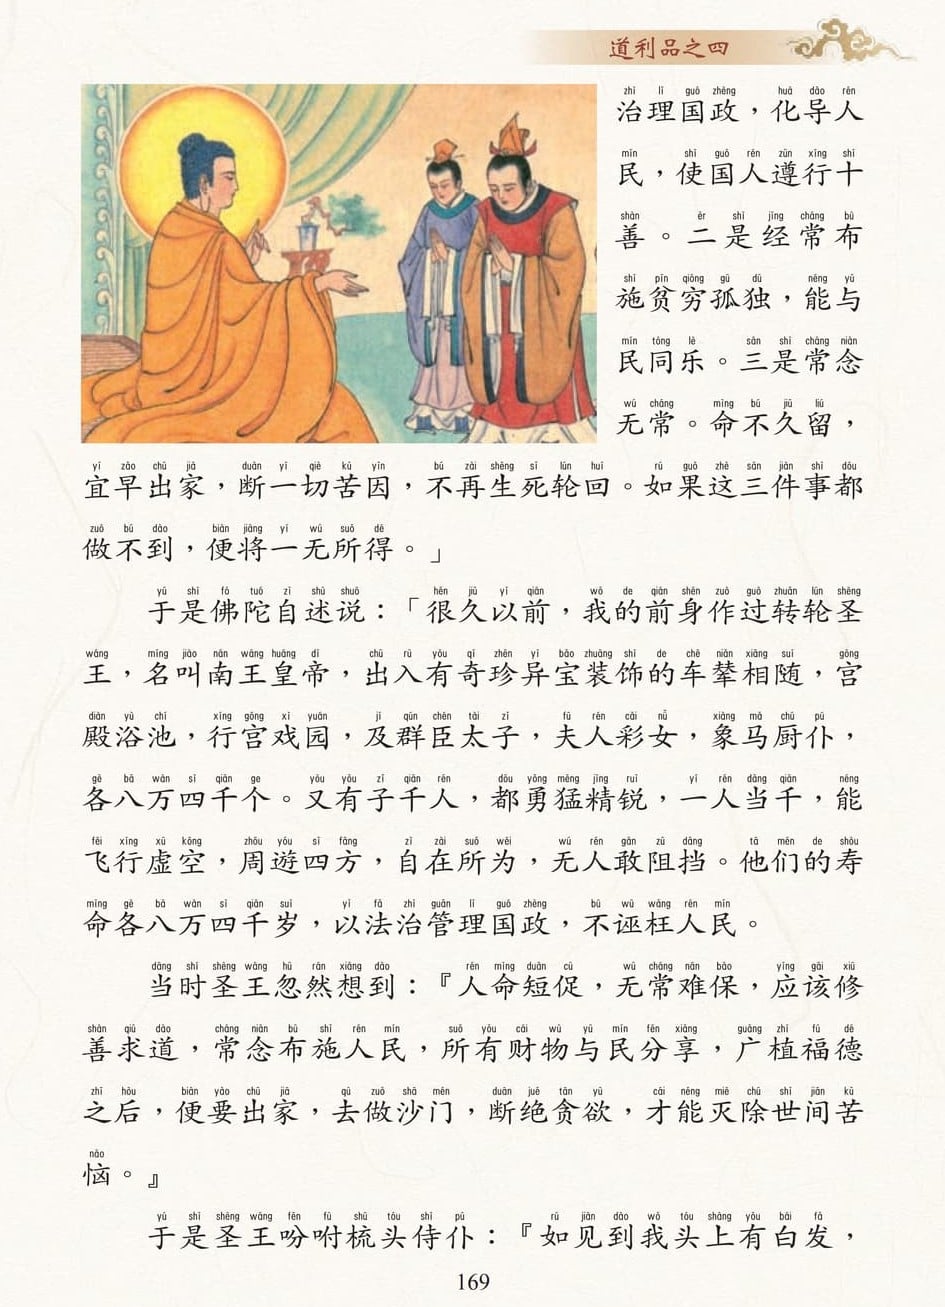 道利品之四
zhì lǐ guó zhèng huà dǎo rén
治理国政，化导人
mín shǐ guó rén zūn xíng shí
民，使国人遵行十
shàn èr shì jīng cháng bù
善。二是经常布
shī pín qióng gū dú néng yǔ
施贫穷孤独，能与
mín tóng lè sān shì cháng niàn
民同乐。三是常念
wú cháng mìng bù jiǔ liú
无常。命不久留，
yí zǎo chū jiā duàn yí qiè kǔ yīn bú zài shēng sǐ lún huí rú guǒ zhè sān jiàn shì dōu
宜早出家，断一切苦因，不再生死轮回。如果这三件事都
zuò bú dào biàn jiāng yì wú suǒ dé
做不到，便将一无所得。」
yú shì fó tuó zì shù shuō hěn jiǔ yǐ qián wǒ de qián shēn zuò guò zhuǎn lún shèng
于是佛陀自述说：「很久以前，我的前身作过转轮圣
wáng míng jiào nán wáng huáng dì chū rù yǒu qí zhēn yì bǎo zhuāng shì de chē niǎn xiāng suí gōng
王，名叫南王皇帝，出入有奇珍异宝装饰的车辇相随，宫
diàn yù chí xíng gōng xì yuán jí qún chén tài zǐ fū rén cǎi nǚ xiàng mǎ chú pú
殿浴池，行宫戏园，及群臣太子，夫人彩女，象马厨仆，
gè bā wàn sì qiān ge yòu yǒu zǐ qiān rén dōu yǒng měng jīng ruì yì rén dāng qiān néng
各八万四千个。又有子千人，都勇猛精锐，一人当千，能
fēi xíng xū kōng zhōu yóu sì fāng zì zài suǒ wéi wú rén gǎn zǔ dǎng tā men de shòu
飞行虚空，周遊四方，自在所为，无人敢阻挡。他们的寿
mìng gè bā wàn sì qiān suì yǐ fǎ zhì guǎn lǐ guó zhèng bù wū wǎng rén mín
命各八万四千岁，以法治管理国政，不诬枉人民。
dāng shí shèng wáng hū rán xiǎng dào rén mìng duǎn cù wú cháng nán bǎo yīng gāi xiū
当时圣王忽然想到：『人命短促，无常难保，应该修
shàn qiú dào cháng niàn bù shī rén mín suǒ yǒu cái wù yǔ mín fēn xiǎng guǎng zhí fú dé
善求道，常念布施人民，所有财物与民分享，广植福德
zhī hòu biàn yào chū jiā qù zuò shā mén duàn jué tān yù cái néng miè chú shì jiān kǔ
之后，便要出家，去做沙门，断绝贪欲，才能灭除世间苦
nǎo
恼。』
yú shì shèng wáng fēn fù shū tóu shì pú rú jiàn dào wǒ tóu shàng yǒu bái fà
于是圣王吩咐梳头侍仆：『如见到我头上有白发，
169